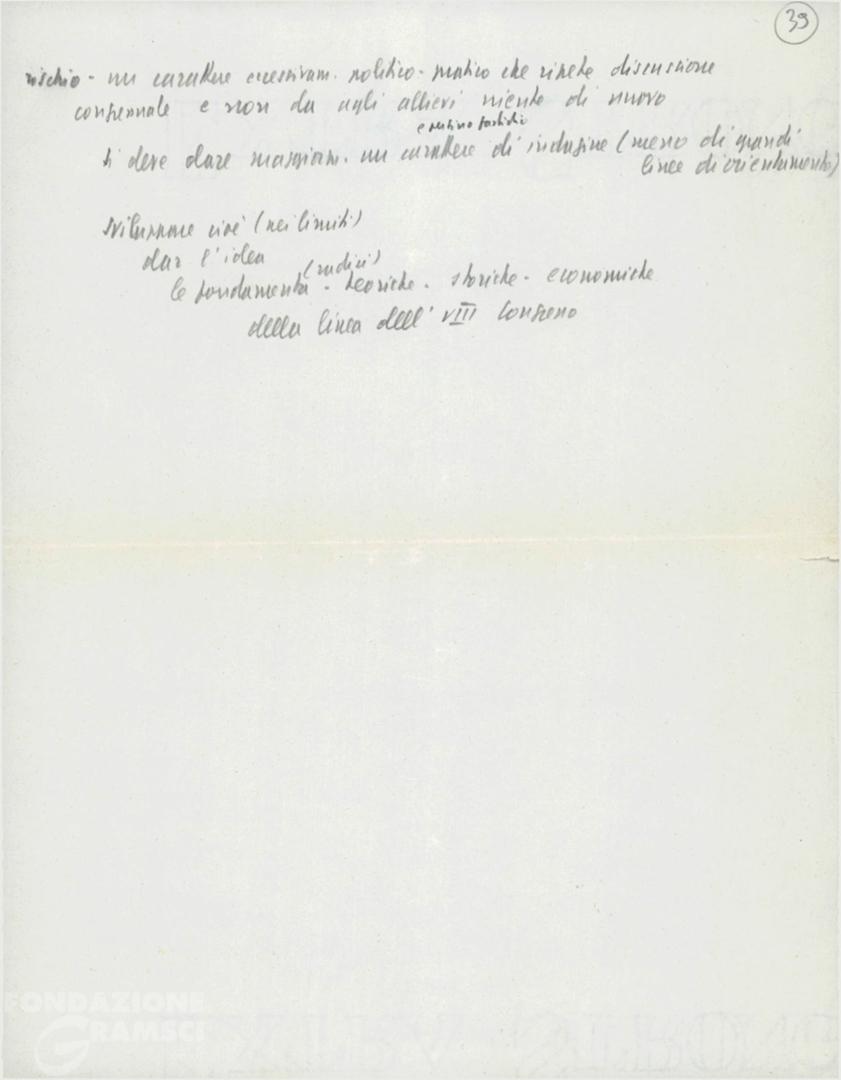 39
rischio - un carattere eccessivam. politico-pratico che ripete discussione
congressuale e non da agli allievi niente di nuovo
si deve dare maggiorm. un carattere di indagine (meno di grandi
linee di orientamento)
sviluppare cioè (nei limiti)
dar l'idea
(radici)
le fondamenta - teoriche - storiche - economiche
della linea dell'VIII Congresso
FONDAZIONE
GRAMSCI